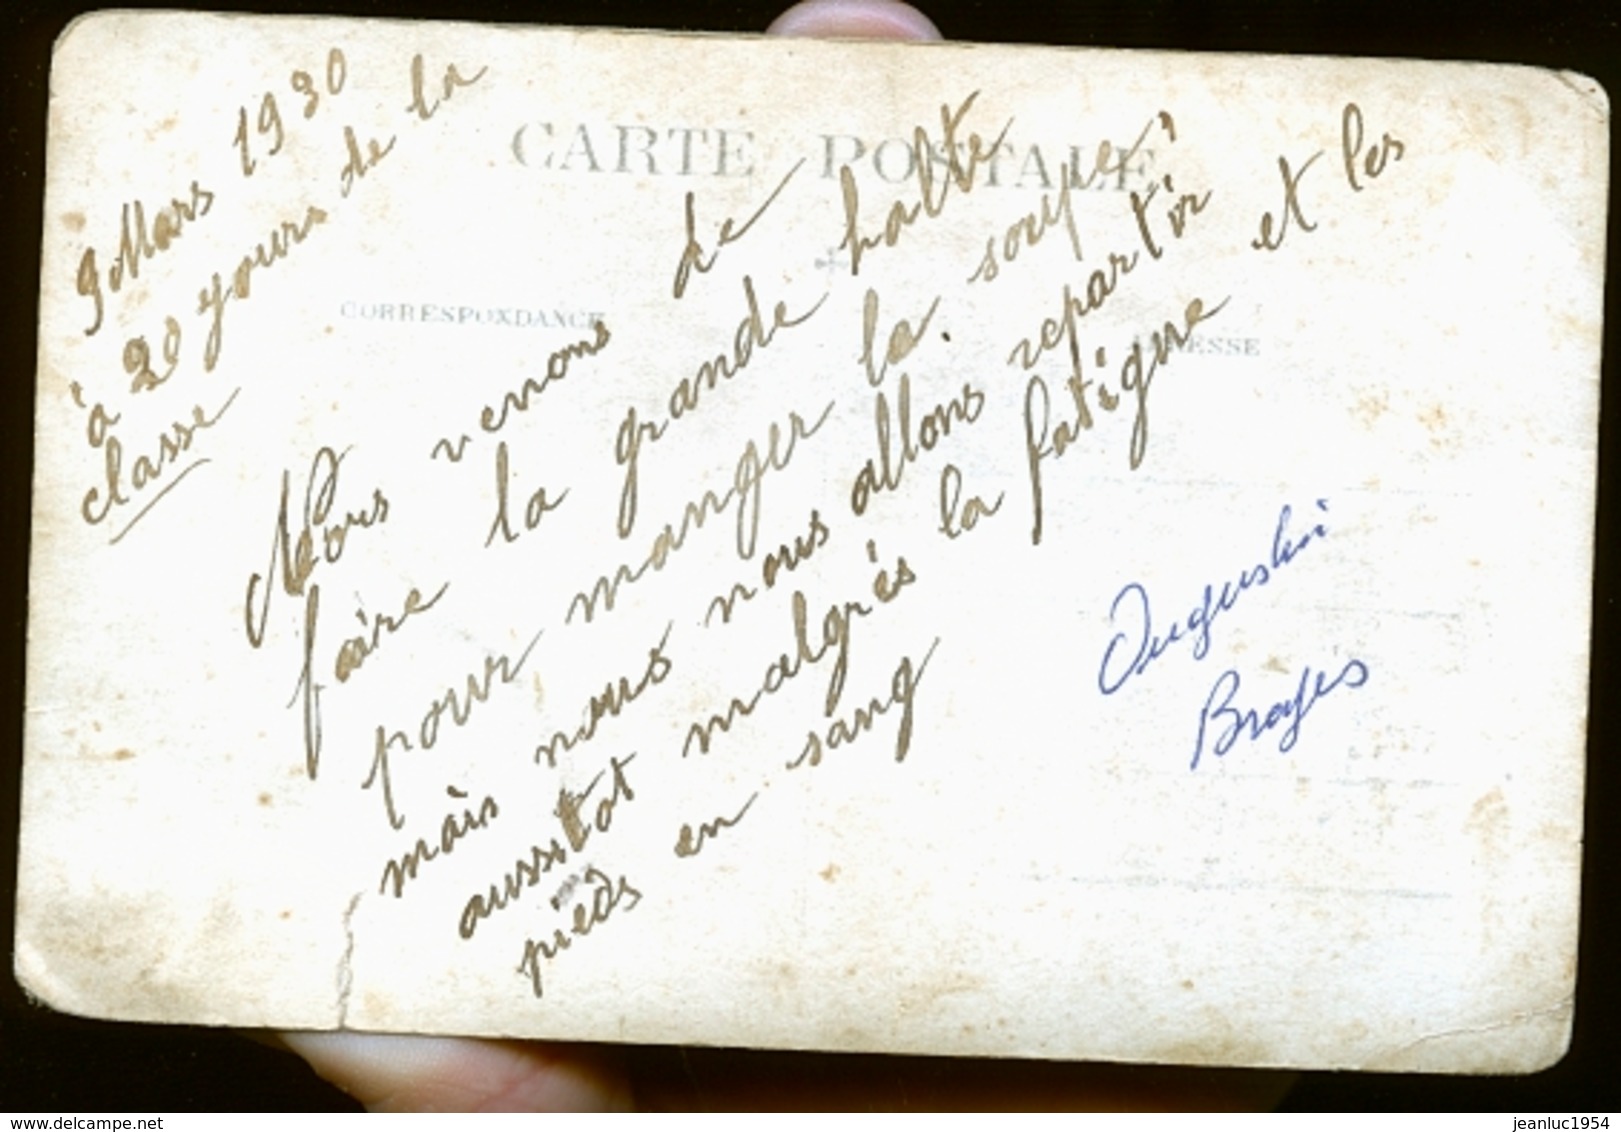 CARTE POSTALE
CORRESPONDANCE
ADRESSE
9 Mars 1930
à 20 yours de la
classe
Nous venons de
faire la grande halte
pour manger la soupe,
mais nous nous allons repartir
aussitot malgrés la fatigue et les
pieds en sang
Augustin
Broyes
delcampe.net
jeanluc1954